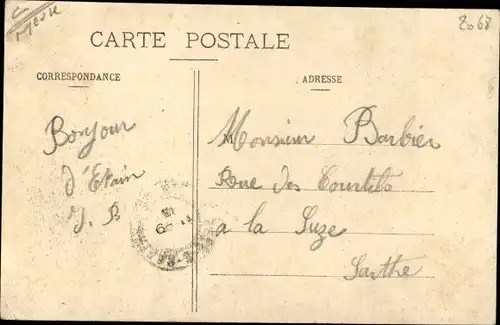 Meuse
2068
CARTE POSTALE
CORRESPONDANCE
ADRESSE
Bonjour
d'Etain
J. B
Monsieur Barbier
Rue des Courtils
a la Suze
Sarthe